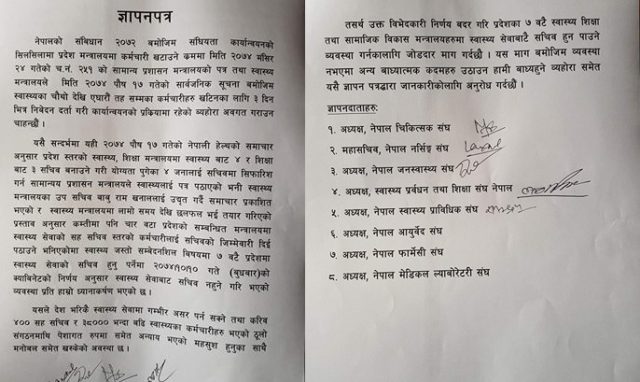 ज्ञापनपत्र
नेपालको संबिधान २०७२ बमोजिम संघियता कार्यान्वयनको
सिलसिलामा प्रदेश मन्त्रालयमा कर्मचारी खटाउने क्रममा मिति २०७४ मंसिर
२४ गतेको च.नं. २५१ को सामान्य प्रशासन मन्त्रालयको पत्र तथा स्वास्थ्य
मन्त्रालयले मिति २०७४ पौष १७ गतेको सार्वजनिक सूचना बमोजिम
स्वास्थ्यका चौथो देखि एघारौं तह सम्मका कर्मचारीहरु खटिनका लागि ३ दिन
भित्र निवेदन दर्ता गरी कार्यान्वयनको प्रकियामा रहेको ब्यहोरा अवगत गराउन
चाहन्छौ ।
यसै सन्दर्भमा यही २०७४ पौष १७ गतेको नेपाली हेल्थको समाचार
अनुसार प्रदेश स्तरको स्वास्थ्य, शिक्षा मन्त्रालयमा स्वास्थ्य बाट ४ र शिक्षा
बाट ३ सचिव बनाउने गरी योग्यता पुगेका ४ जनालाई सचिवमा सिफारिश
गर्न सामान्य प्रशासन मन्त्रालयले स्वास्थ्यलाई पत्र पठाएको भनी स्वास्थ्य
मन्त्रालयका उप सचिव बाबु राम खनाललाई उधृत गर्दै समाचार प्रकाशित
भएको र स्वास्थ्य मन्त्रालयमा लामो समय देखि छलफल भई तयार गरिएको
प्रस्ताव अनुसार कम्तीमा पनि चार वटा प्रदेशको सम्बन्धित मन्त्रालयमा
स्वास्थ्य सेवाको सह सचिव स्तरको कर्मचारीलाई सचिवको जिम्मेवारी दिई
पठाउने भनिएकोमा स्वास्थ्य जस्तो सम्बेदनशिल बिषयमा ७ वटै प्रदेशमा
स्वास्थ्य सेवाको सचिव हुनु पर्नेमा २०७४।९।१९ गते (बुधवार)को
क्याबिनेटको निर्णय अनुसार स्वास्थ्य सेवाबाट सचिव नहुने गरि भएको
ब्यवस्था प्रति हाम्रो ध्यानाकर्षण भएको छ ।
यसले देश भरिकै स्वास्थ्य सेवामा गम्भीर असर पर्न सक्ने तथा करिब
४०० सह सचिव र ३८००० भन्दा बढि स्वास्थ्यका कर्मचारीहरु भएको ठूलो
संगठनमाथि पेशागत रुपमा समेत अन्याय भएको महसुश हुनुका साथै
मनोबल समेत खस्केको अवस्था छ ।
तसर्थ उक्त विभेदकारी निर्णय बदर गरि प्रदेशका ७ वटै स्वास्थ्य शिक्षा
तथा सामाजिक विकास मन्त्रालयहरुमा स्वास्थ्य सेवाबाटै सचिव हुन पाउने
ब्यवस्था गर्नकालागि जोडदार माग गर्दछौं । यस माग बमोजिम ब्यवस्था
नभएमा अन्य बाध्यात्मक कदमहरु उठाउन हामी बाध्यहुने ब्यहोरा समेत
यसै ज्ञापन पत्रद्वारा जानकारीकोलागि अनुरोध गर्दछौं ।
ज्ञापनदाताहरु:
१. अध्यक्ष, नेपाल चिकित्सक संघ
२. महासचिव, नेपाल नर्सिङ्ग संघ
३. अध्यक्ष, नेपाल जनस्वास्थ्य संघ
४. अध्यक्ष, स्वास्थ्य प्रर्वधन तथा शिक्षा संघ नेपाल
५. अध्यक्ष, नेपाल स्वास्थ्य प्राविधिक संघ
६. अध्यक्ष, नेपाल आयुर्वेद संघ
७. अध्यक्ष, नेपाल फार्मेसी संघ
८. अध्यक्ष, नेपाल मेडिकल ल्याबोरेटरी संघ